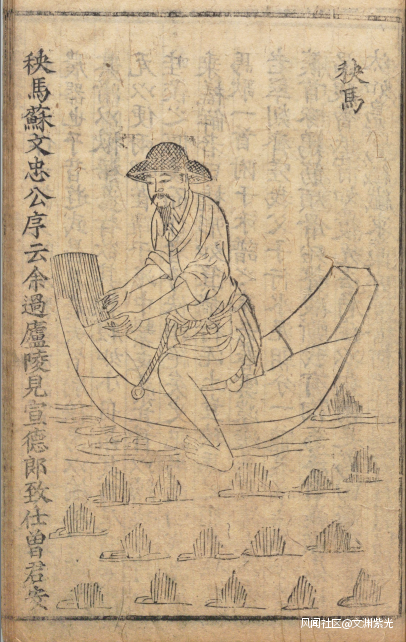 秧馬
秧馬蘇文忠公序云余過廬陵見宣德郎致仕曾君安
风闻社区@文渊紫光